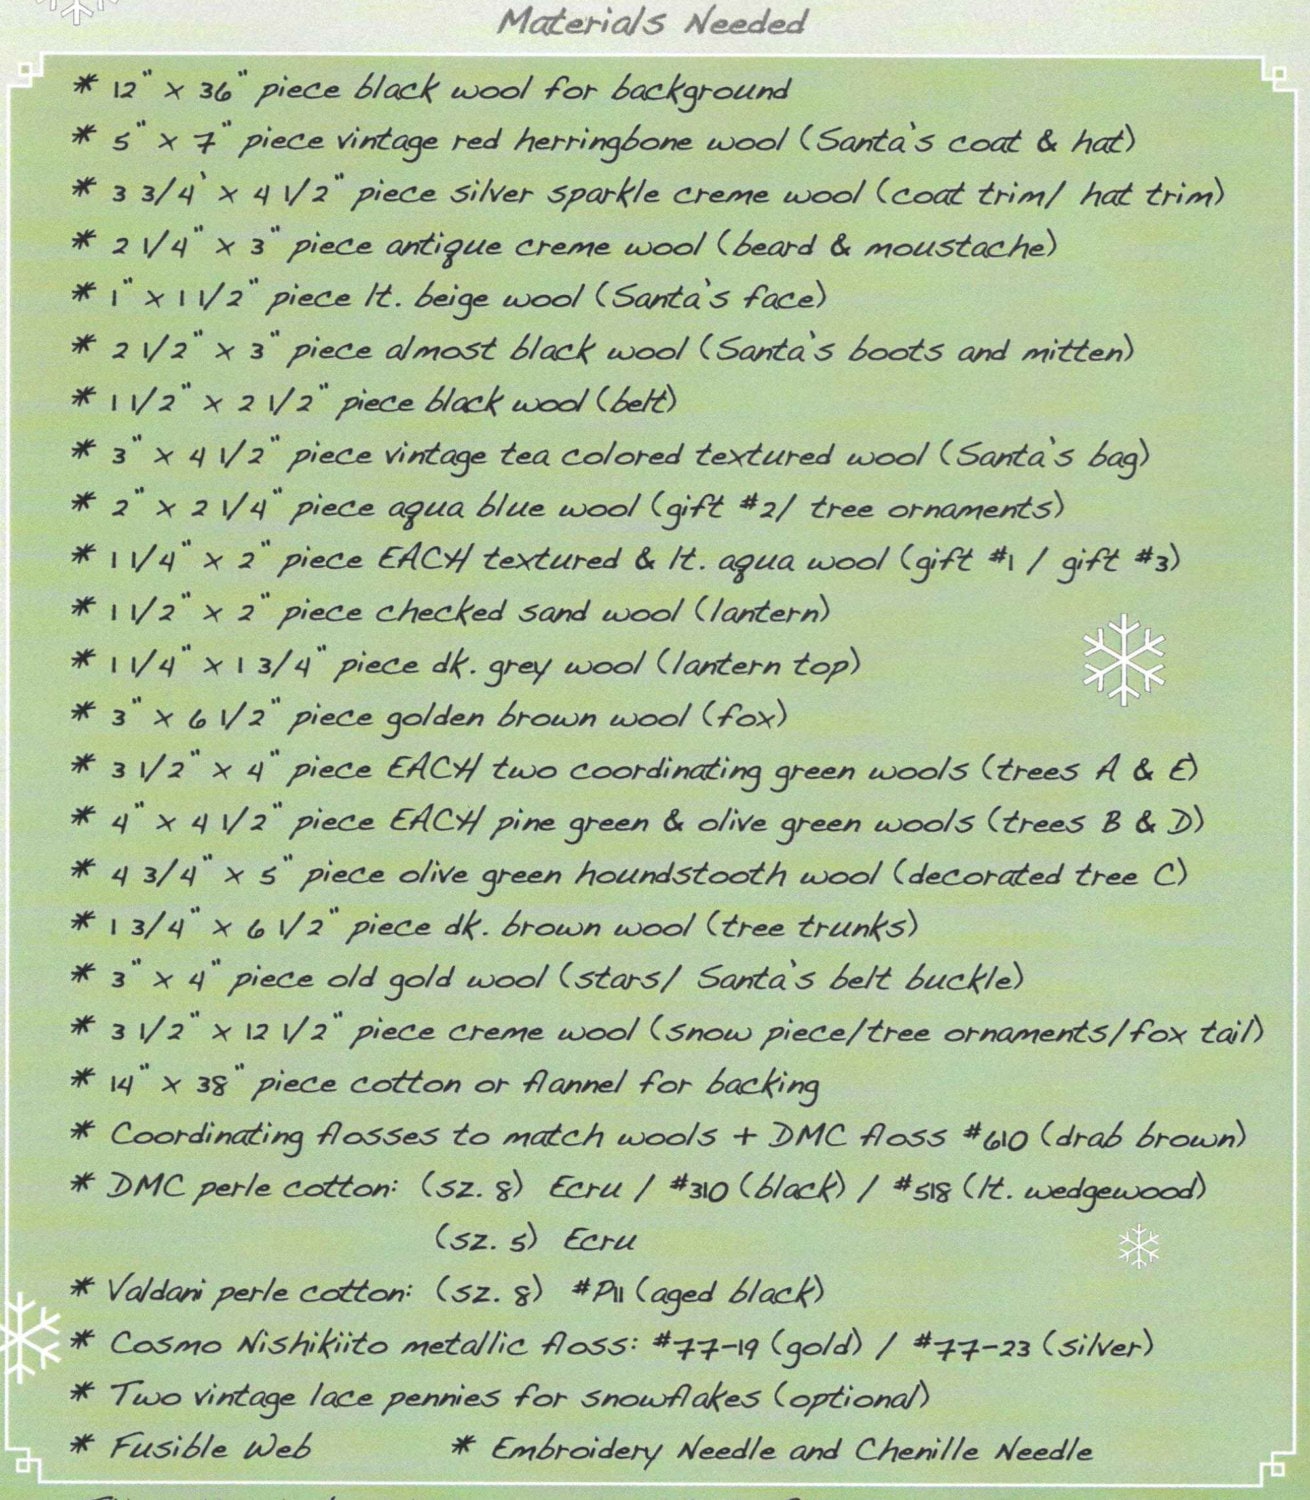 Materials Needed
* 12" x 36" piece black wool for background
* 5" x 7" piece vintage red herringbone wool (Santa's coat & hat)
* 3 3/4' x 4 1/2" piece silver sparkle creme wool (coat trim/ hat trim)
* 2 1/4" x 3" piece antique creme wool (beard & moustache)
* 1" x 1 1/2" piece lt. beige wool (Santa's face)
* 2 1/2" x 3" piece almost black wool (Santa's boots and mitten)
* 1 1/2" x 2 1/2" piece black wool (belt)
* 3" x 4 1/2" piece vintage tea colored textured wool (Santa's bag)
* 2" x 2 1/4" piece aqua blue wool (gift #2/ tree ornaments)
* 1 1/4" x 2" piece EACH textured & lt. aqua wool (gift #1 / gift #3)
* 1 1/2" x 2" piece checked sand wool (lantern)
* 1 1/4" x 1 3/4" piece dk. grey wool (lantern top)
* 3" x 6 1/2" piece golden brown wool (fox)
* 3 1/2" x 4" piece EACH two coordinating green wools (trees A & E)
* 4" x 4 1/2" piece EACH pine green & olive green wools (trees B & D)
* 4 3/4" x 5" piece olive green houndstooth wool (decorated tree C)
* 1 3/4" x 6 1/2" piece dk. brown wool (tree trunks)
* 3" x 4" piece old gold wool (stars/ Santa's belt buckle)
* 3 1/2" x 12 1/2" piece creme wool (snow piece/tree ornaments/fox tail)
* 14" x 38" piece cotton or flannel for backing
* Coordinating flosses to match wools + DMC floss #610 (drab brown)
* DMC perle cotton: (sz. 8) Ecru / #310 (black) / #518 (lt. wedgewood)
(sz. 5) Ecru
* Valdani perle cotton: (sz. 8) #P11 (aged black)
* Cosmo Nishikiito metallic floss: #77-19 (gold) / #77-23 (silver)
* Two vintage lace pennies for snowflakes (optional)
* Fusible Web * Embroidery Needle and Chenille Needle